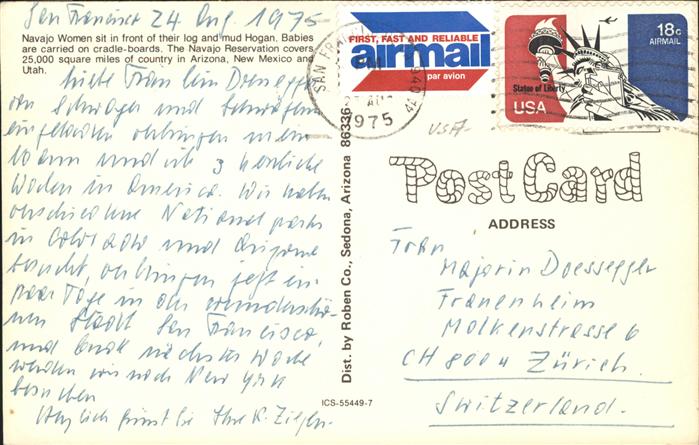 San Francisco 24 Aug. 1975
Navajo Women sit in front of their log and mud Hogan. Babies
are carried on cradle-boards. The Navajo Reservation covers
25,000 square miles of country in Arizona, New Mexico and
Utah.
Liebe Fräulein Doessegger
von Schwager und Schwägerin
eingeladen verbringen mein
Mann und ich 3 herrliche
Wochen in America. Wir haben
verschiedene Nationalparks
in Colorado und Arizona
besucht, verbringen jetzt ein
paar Tage in der wunderschö-
nen Stadt San Francisco,
und Ende nächster Woche
werden wir noch New York
besuchen.
Herzlich grüsst Sie Ihre K. Ziegler.
Dist. by Roben Co., Sedona, Arizona 86336
ICS-55449-7
SAN FRA
940
PM
AUG
1975
FIRST, FAST AND RELIABLE
airmail
par avion
18c
AIRMAIL
Statue of Liberty
USA
USA
PostCard
ADDRESS
Frau
Marjorin Doessegger
Frauenheim
Molkenstrasse 6
CH 8004 Zürich.
Switzerland.